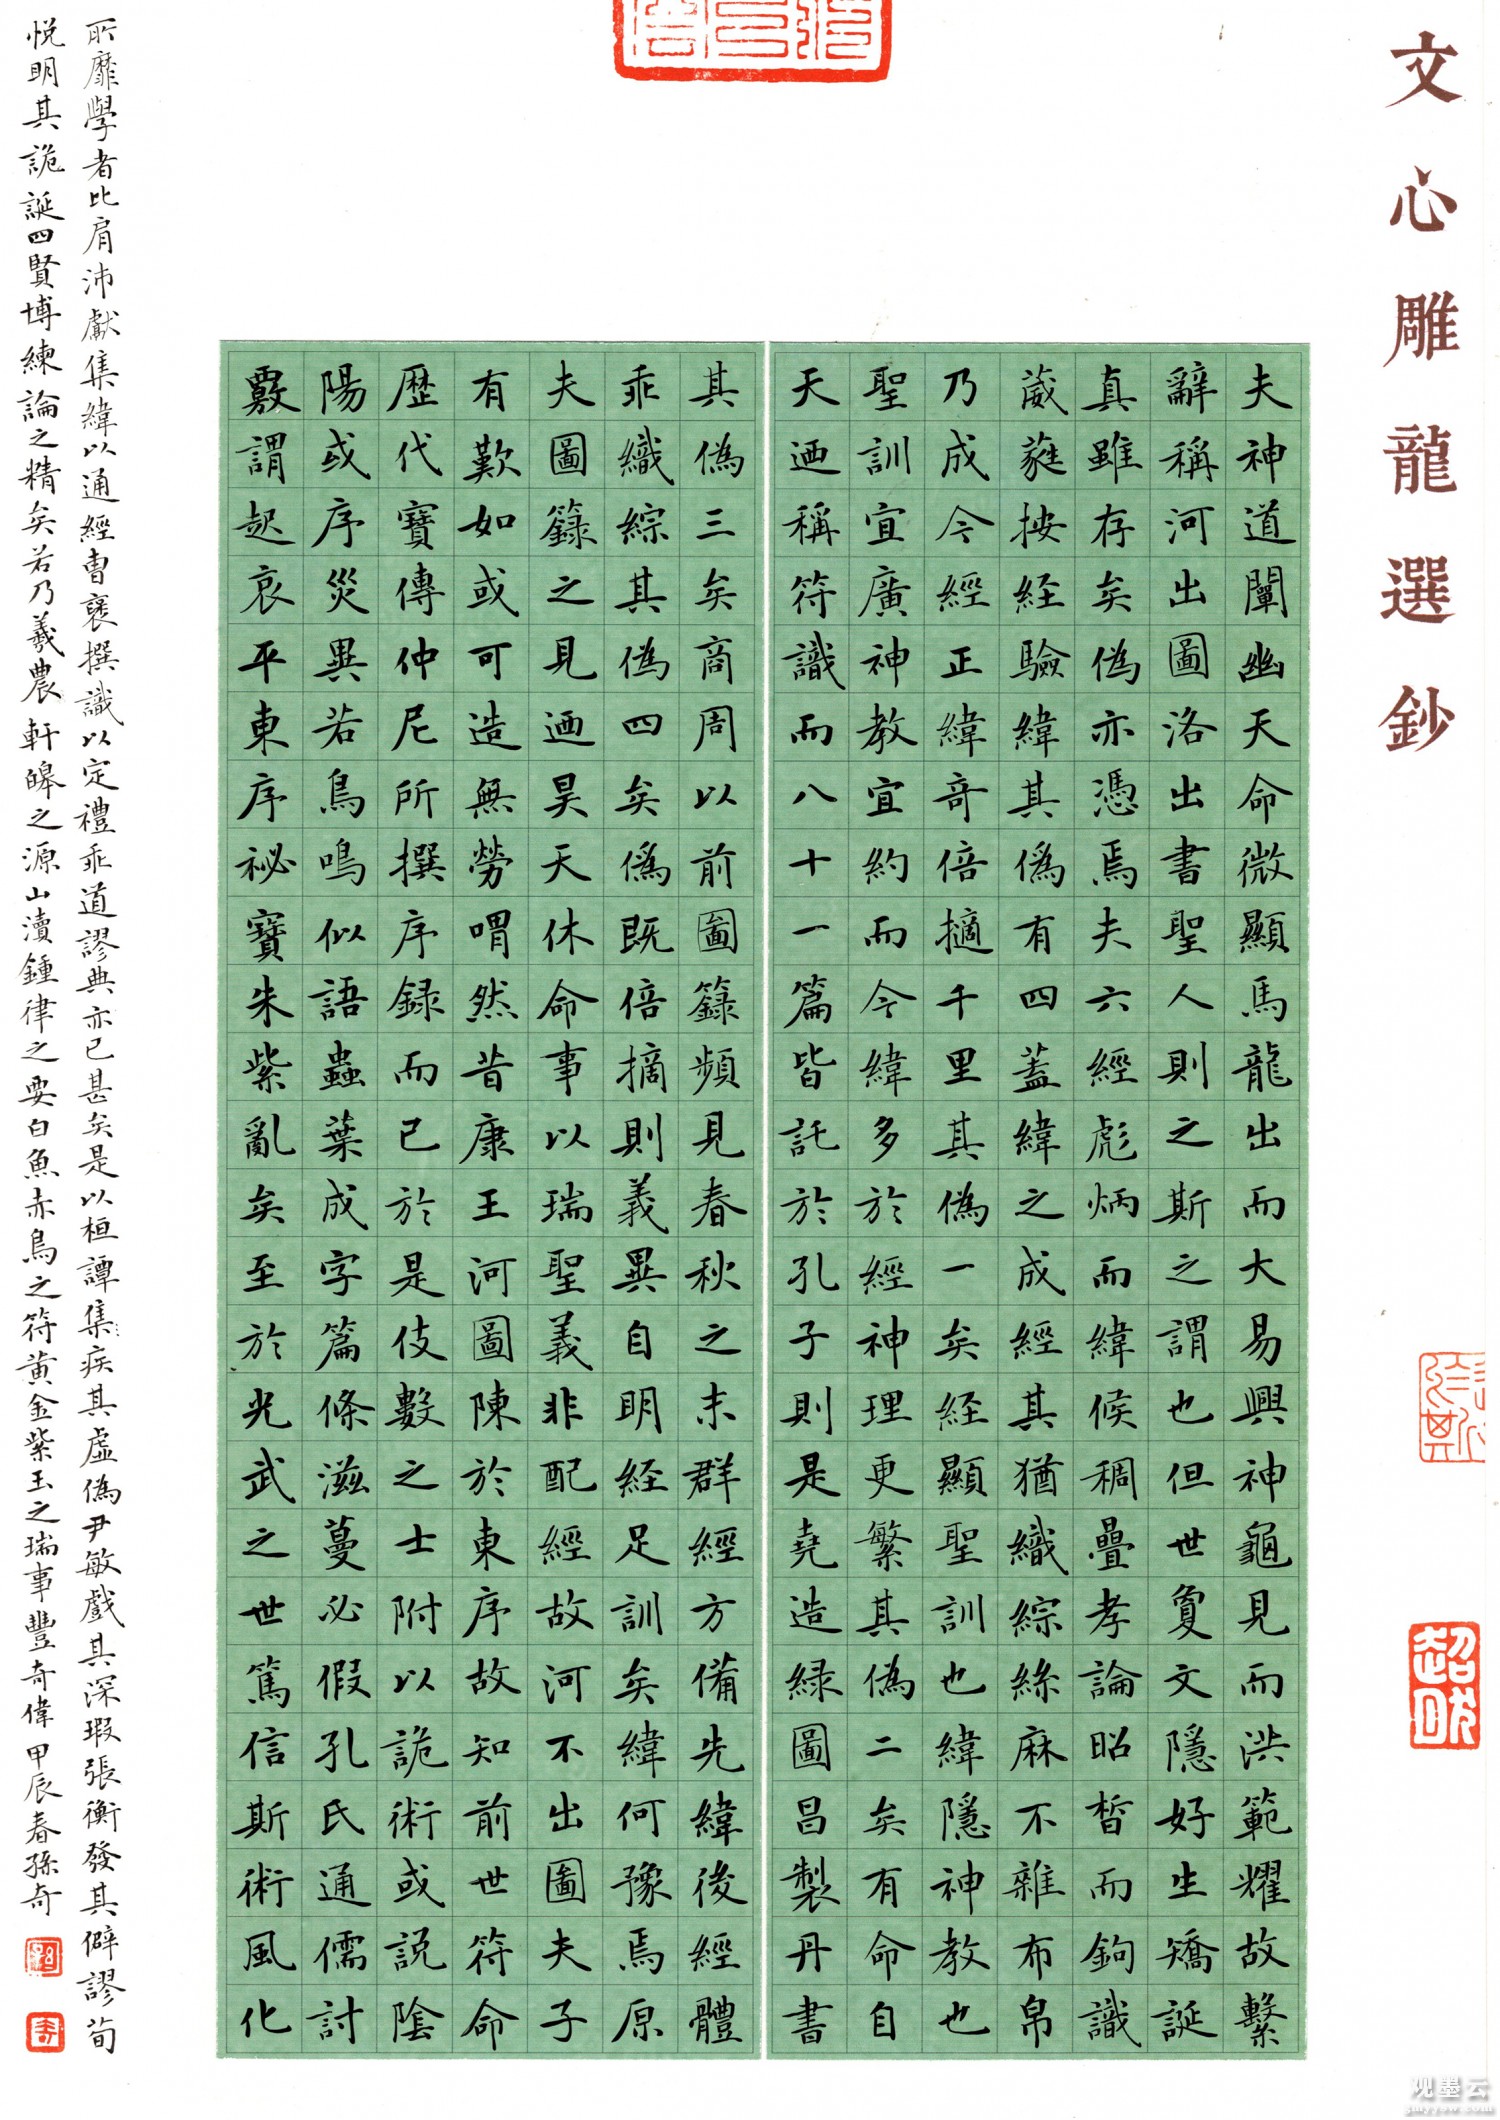 文心雕龍選鈔
夫神道闡幽天命微顯馬龍出而大易興神龜見而洪範耀故繫
辭稱河出圖洛出書聖人則之斯之謂也但世敻文隱好生矯誕
真雖存矣偽亦憑焉夫六經彪炳而緯候稠疊孝論昭晳而鉤讖
葳蕤按经驗緯其偽有四蓋緯之成經其猶織綜絲麻不雜布帛
乃成今經正緯奇倍擿千里其偽一矣经顯聖訓也緯隱神教也
聖訓宜廣神教宜約而今緯多於經神理更繁其偽二矣有命自
天迺稱符讖而八十一篇皆託於孔子則是堯造緑圖昌製丹書
其偽三矣商周以前圖籙頻見春秋之末群經方備先緯後經體
乖織綜其偽四矣僞既倍摘則義異自明经足訓矣緯何豫焉原
夫圖籙之見迺昊天休命事以瑞聖義非配經故河不出圖夫子
有歎如或可造無勞喟然昔康王河圖陳於東序故知前世符命
歷代寶傳仲尼所撰序録而已於是伎數之士附以詭術或説陰
陽或序災異若鳥鳴似語蟲葉成字篇條滋蔓必假孔氏通儒討
覈謂起哀平東序祕寶朱紫亂矣至於光武之世篤信斯術風化
所靡學者比肩沛獻集緯以通經曹襃撰讖以定禮乖道謬典亦已甚矣是以桓譚集疾其虛偽尹敏戲其深瑕張衡發其僻謬荀
悦明其詭誕四賢博練論之精矣若乃羲農軒皞之源山瀆鍾律之要白魚赤烏之符黄金紫玉之瑞事豐奇偉甲辰春孫奇
昭明
观墨云
gmyyow.com